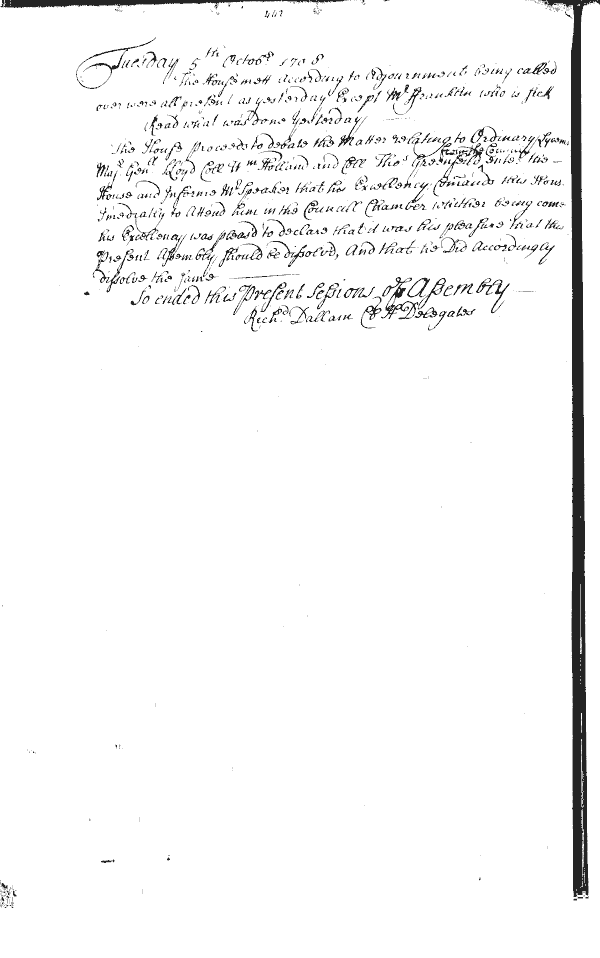 Tuesday 5th Octobr 1708
The House mett according to Adjournment being called
over were all present as yesterday Except Mr Frankltn who is sick
Read what was done yesterday
The House proceeds to debate the Matter relating to Ordinary Lycen
from the Council
Majr Genll Lloyd Coll Wm Holland and Coll Thos Greenfeild enter the
House and Informe Mr Speaker that his Excellency Comands this Hous
Imediatly to Attend him in the Councill Chamber whither being come
his Excellency was pleasd to declare that it was his pleasure that this
Present Assembly should be dissolved, And that he Did Accordingly
dissolve the same
So ended this Present Sessions of Assembly
Richd Dallam Cl Hs Delegates